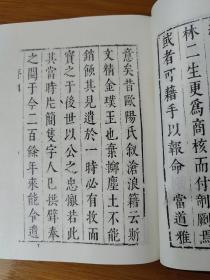 林二生更爲商核而付剞劂焉
或者可藉手以報命　當道雅
意矣昔歐陽氏叙滄浪籍云斯
文精金璞玉也棄擲塵土不能
銷蝕其見遺於一時必有收而
寶之于後世以公之忠若此
其當時片簡隻字人已拱璧奉
之閱于今二百餘年來能令遺